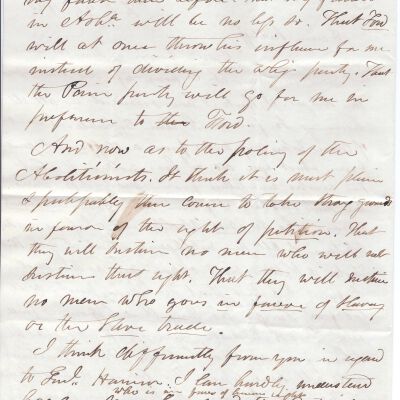 in Ashᵃ will be no less so. That Ford
will at once throw his influence for me
instead of dividing the whig party. That
the Penn party will go for me in
preference to the Ford.
And now as to the policy of the
Abolitionists. I think it is most plain
& palpably their course to take strong grounds
in favor of the right of petition. That
they will sustain no man who will not
sustain that right. That they will sustain
no man who goes in favor of Slavery
or the Slave trade.
I think differently from you in regard
to Genl. Harrison. I can hardly understand
who is in favor of